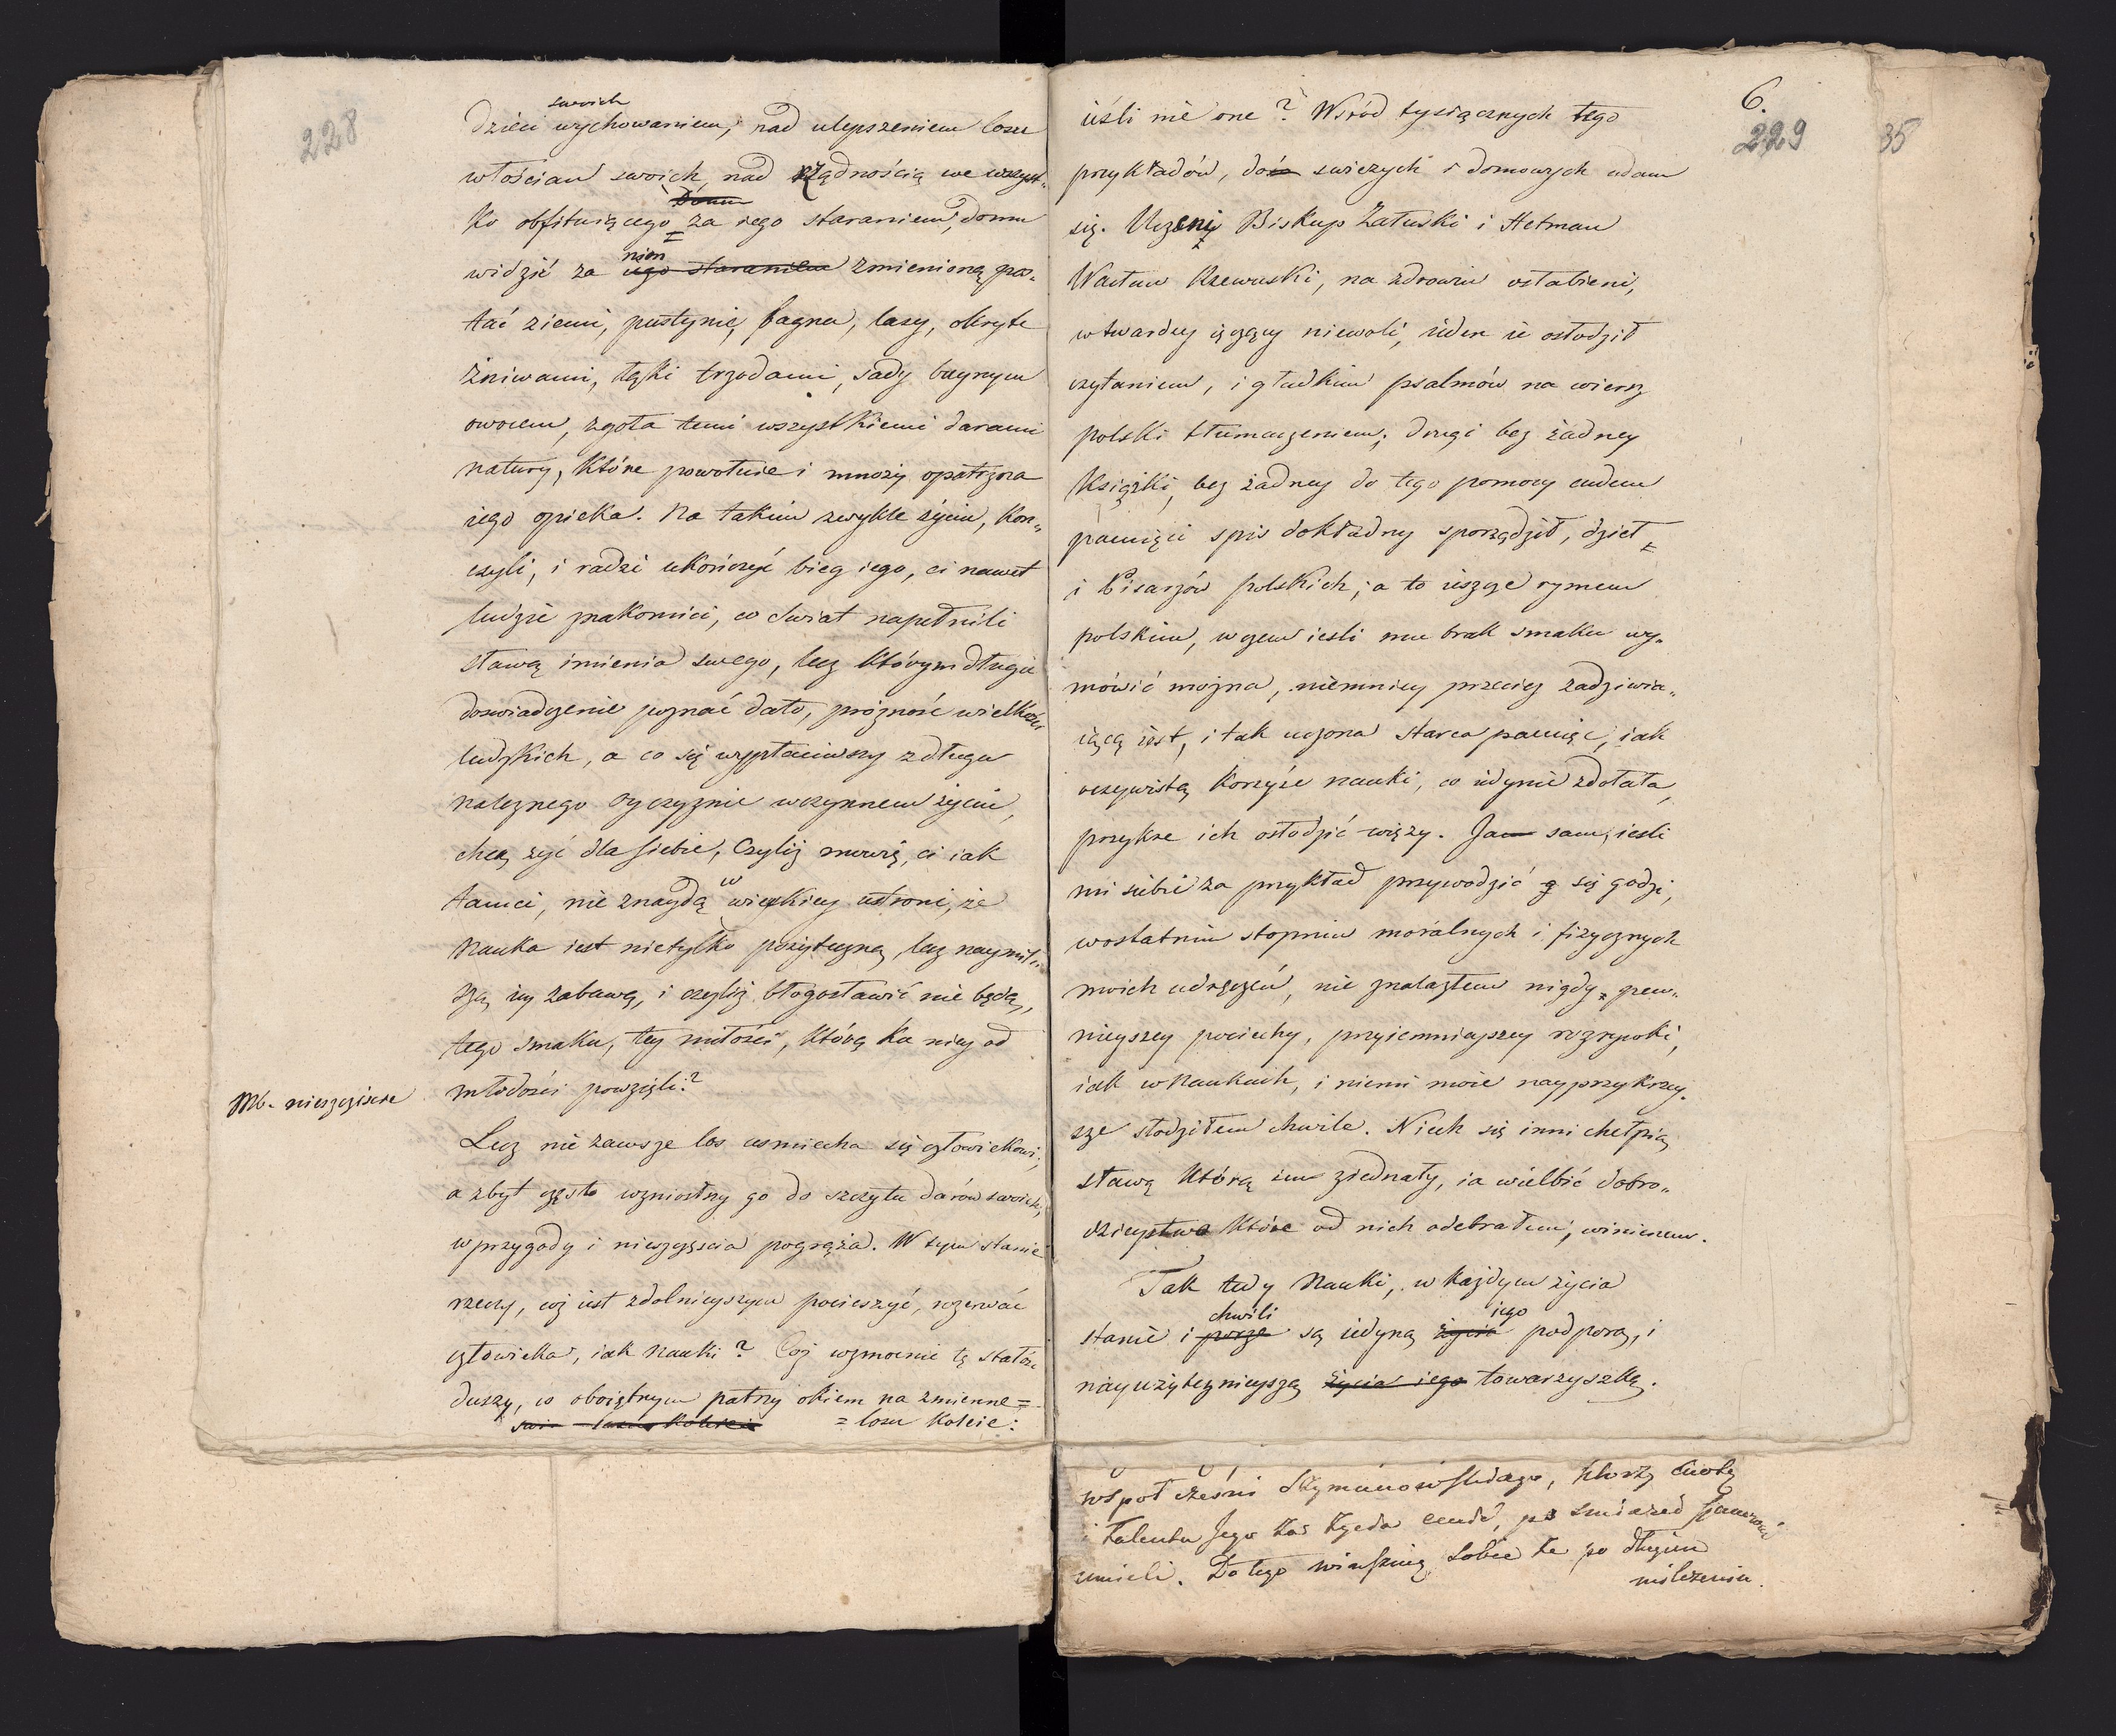 228
swoich
dzieci wychowaniem, nad ulepszeniem losu
włościan swoich, nad rządnością we wszyst„
Domu
ko obfituiącego za iego staraniem, domu
nim
widzić za iego staraniem zmienioną pos„
tać ziemi, pustynie, bagna, lasy, okryte
żniwami, łąki trzodami, sady buynym
owocem, zgoła temi wszystkiemi darami
natury, które powołuie i mnoży opatrzna
iego opieka. Na takim zwykle życiu, koń„
czyli, i radzi ukończyć bieg iego, ci nawet
ludzie znakomici, co świat napełnili
sławą imienia swego, lecz którym długie
doswiadczenie poznać dało, próżność wielkości
ludzkich, a co się wypłaciwszy z długu
należnego oyczyznie wczynnem życiu,
chcą żyć dla siebie, Czyliż mowię, ci iak
tamci, nie znaydą w wieyskiey ustroni, że
Nauka iest nietylko pożyteczną, lecz naymil„
szą iey zabawą, i czyliż błogosławić nie będą,
tego smaku, tey miłości, którą ku niey od
Mb. nieszczęscie
młodości powzięli?
Lecz nie zawsze los usmiecha się człowiekowi;
a zbyt często wzniosłszy go do szczytu darów swoich,
w przygody i nieszczęscia pogrąża. W tym stanie
rzeczy, coż iest zdolnieyszym pocieszyć, rozerwać
człowieka, iak Nauki? Coż wzmocnie tę stałość
duszy, co oboiętnym patrzy okiem na zmienne =
= losu koleie:
6.
229
35
ieśli nie one? Wśród tysiącznych tego
przykładów, do swieżych i domowych udam
się. Uczeni Biskup Załuski i Hetman
Wacław Rzewuski, na zdrowiu osłabieni,
w twardey ięczący niewoli, ieden ie osłodził
czytaniem, i gładkim psalmów na wiersz
polski tłumaczeniem; drugi bez żadney
Książki, bez żadney do tego pomocy cudem
pamięci spis dokładny sporządził, dzieł
i Pisarzów polskich; a to ieszcze rymem
polskim, w czem iesli mu brak smaku wy„
mówić można, niemniey przecież zadziwia„
iącą iest, i tak uczona starca pamięć, iak
oczywistą korzyść nauki, co iedynie zdołała,
przykre ich osłodzić więzy. Ja sam, iesli
mi siebie za przykład przywodzić się godzi,
wostatnim stopniu moralnych i fizycznych
moich udręczeń, nie znalazłem nigdy pew„
nieyszey pociechy, przyiemnieyszey rozrywki,
iak w Naukach, i niemi moie nayprzykrzey„
sze słodziłem chwile. Niech się inni chełpią
sławą którą im ziednały, ia wielbić dobro„
dzieystwo które od nich odebrałem, winienem.
Tak tedy Nauki, w każdym życia
chwili      iego
stanie i porze są iedyną życia podporą, i
nayużytecznieyszą życia iego towarzyszką.
współcześni Szymanowskiego, którzy cnotę
i talenta Jego
umieli. Do tego wierszuią sobie te po długim
milczeniu.